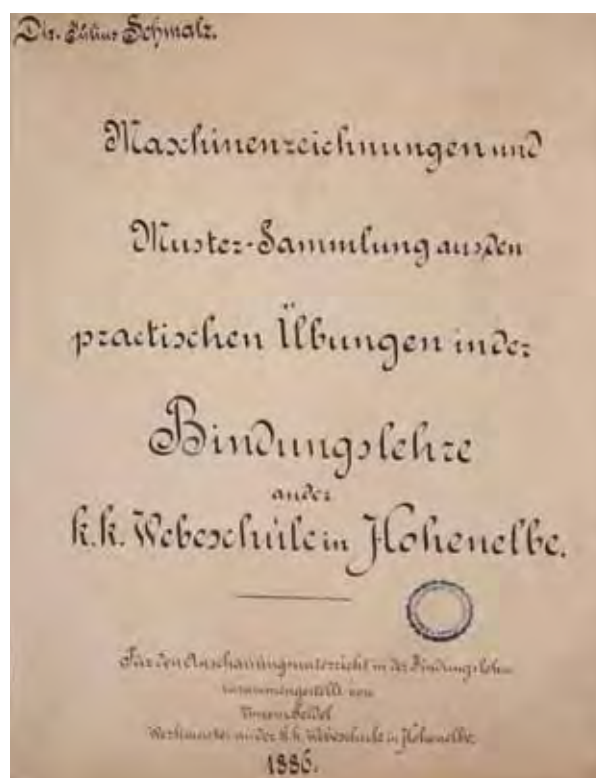 Dir. Julius Schmalz.
Maschinenzeichnungen und
Muster-Sammlung aus den
practischen Übungen in der
Bindungslehre
an der
k.k. Webeschule in Hohenelbe.
Für den Anschauungsunterricht in der Bindungslehre
zusammengestellt von
Seidel
Werkmeister an der k.k. Webeschule in Hohenelbe.
1886.